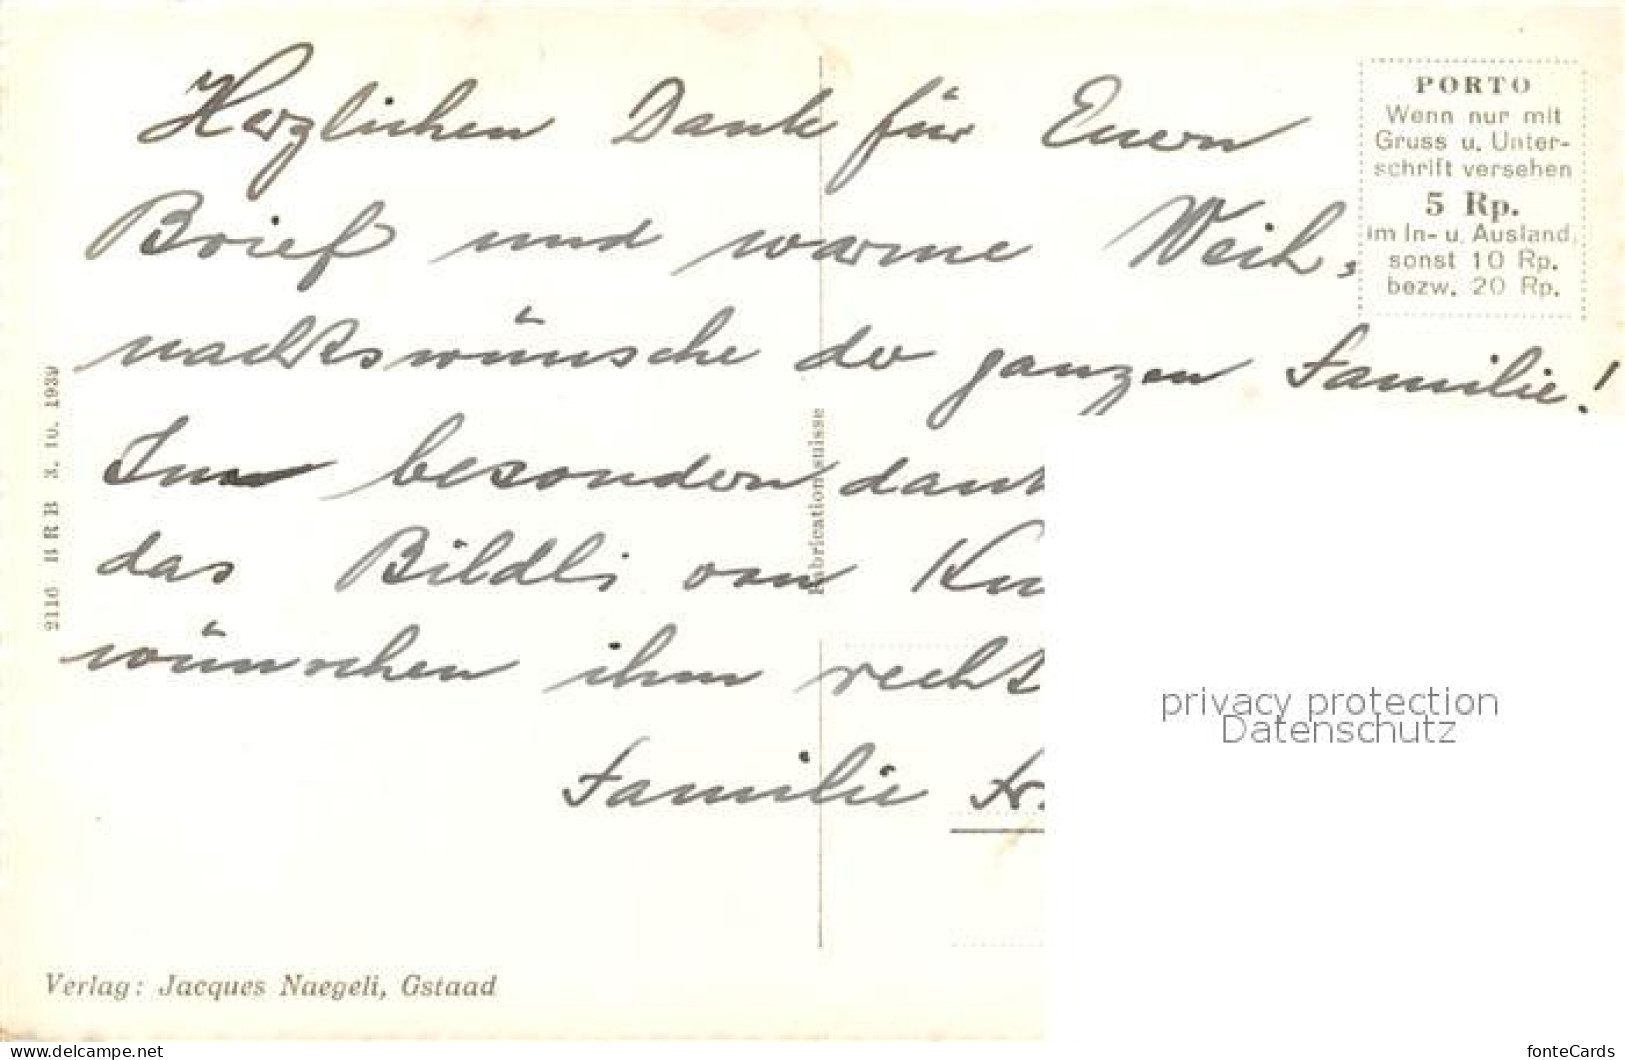 Herzlichen Dank für Euern
Brief und warme Weih-
nachtswünsche der ganzen Familie!
Im besondern dank
das Bildli von
wünschen ihm recht
Familie
PORTO
Wenn nur mit
Gruss u. Unter-
schrift versehen
5 Rp.
im In- u. Ausland,
sonst 10 Rp.
bezw. 20 Rp.
2116 BRB 3. 10. 1939
Fabrication suisse
privacy protection
Datenschutz
Verlag: Jacques Naegeli, Gstaad
www.delcampe.net
fonteCards